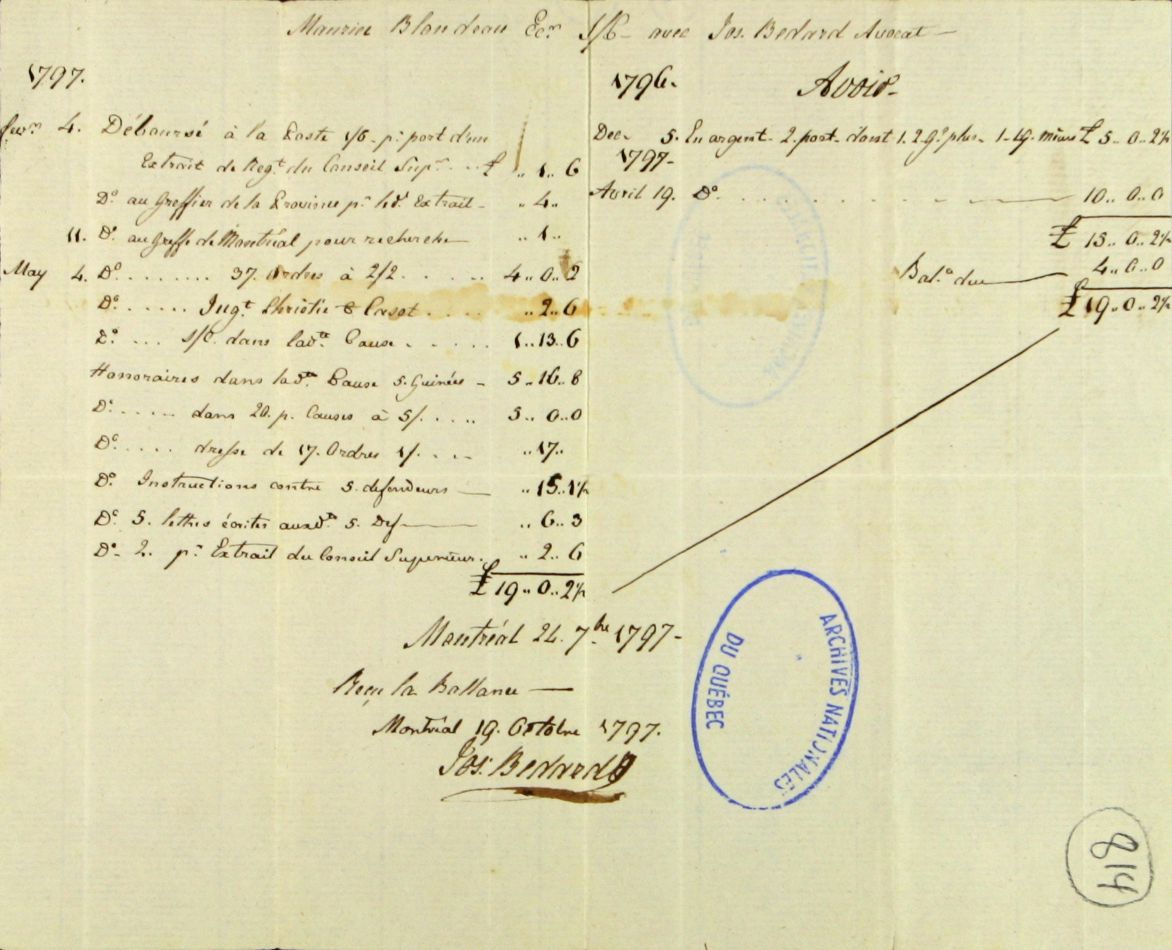 Maurice Blondeau Ecr. S/C avec Jos. Bedard Avocat
1797.
4. Déboursé à la Poste 1/6 pr. port d'un
Extrait de Regt. du Conseil Supr. . . £ ,, 1 ,, 6
Do. au Greffier de la Province pr. led. Extrait - ,, 4 ,,
11. Do. au Greffe de Montréal pour recherche ,, 1 ,,
May 4. Do. . . . . . . 37. Ordres à 2/2 . . . . . 4 ,, 0 ,, 2
Do. . . . . . Jugt. Christie & . . . . ,, 2 ,, 6
Do. . . . S/C. dans ladte. Cause . . . . . 1 ,, 13 ,, 6
Honoraires dans ladte. Cause 5. Guinées - 5 ,, 16 ,, 8
Do. . . . . . dans 20. p. Causes à 5/. . . . . 5 ,, 0 ,, 0
Do. . . . . dresse de 17. Ordres 1/. . . . ,, 17 ,,
Do. Instructions contre 5. defendeurs — ,, 15 ,, 1½
Do. 5. lettres écrites auxdts. 5. Def — ,, 6 ,, 3
Do. 2. pr. Extrait du Conseil Superieur. ,, 2 ,, 6
£ 19 ,, 0 ,, 2½
1796. Avoir
Dec. 5. En argent 2. port. dont 1. 2 gs. plus - 1 - 19. moins £ 5 ,, 0 ,, 2½
1797
Avril 19. Do. . . . . . . . . . . . 10 ,, 0 ,, 0
£ 15 ,, 0 ,, 2½
Balce. due — 4 ,, 0 ,, 0
£ 19 ,, 0 ,, 2½
Montréal 24. 7bre 1797
Reçu la Ballance —
Montréal 19. Octobre 1797.
Jos. Bedard
ARCHIVES NATIONALES
DU QUÉBEC
814